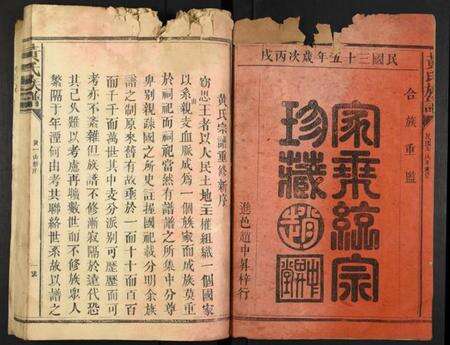 民國三十五年歲次丙戌
合族重鐫
家乘統宗
珍藏
進邑趙中昇梓行
黃氏族譜
黃氏宗譜重修新序
竊思王者以人民土地主權組織一個國家
以系親支血脈成為一個族家而成族莫重
於祠祀而祠祀當然有譜譜之所集中分尊
卑別親疎國之所史註握國祀載分明余族
譜之制原來舊有故重於一而十十而百百
而千千而萬世其中支分派別可歷歷而可
考亦不紊雜但族譜不修漸寂隔於遠代恐
其已久難以考慮再隔數世而不修族衆人
繁隔 年湮何由考其聯絡世系故以譜之